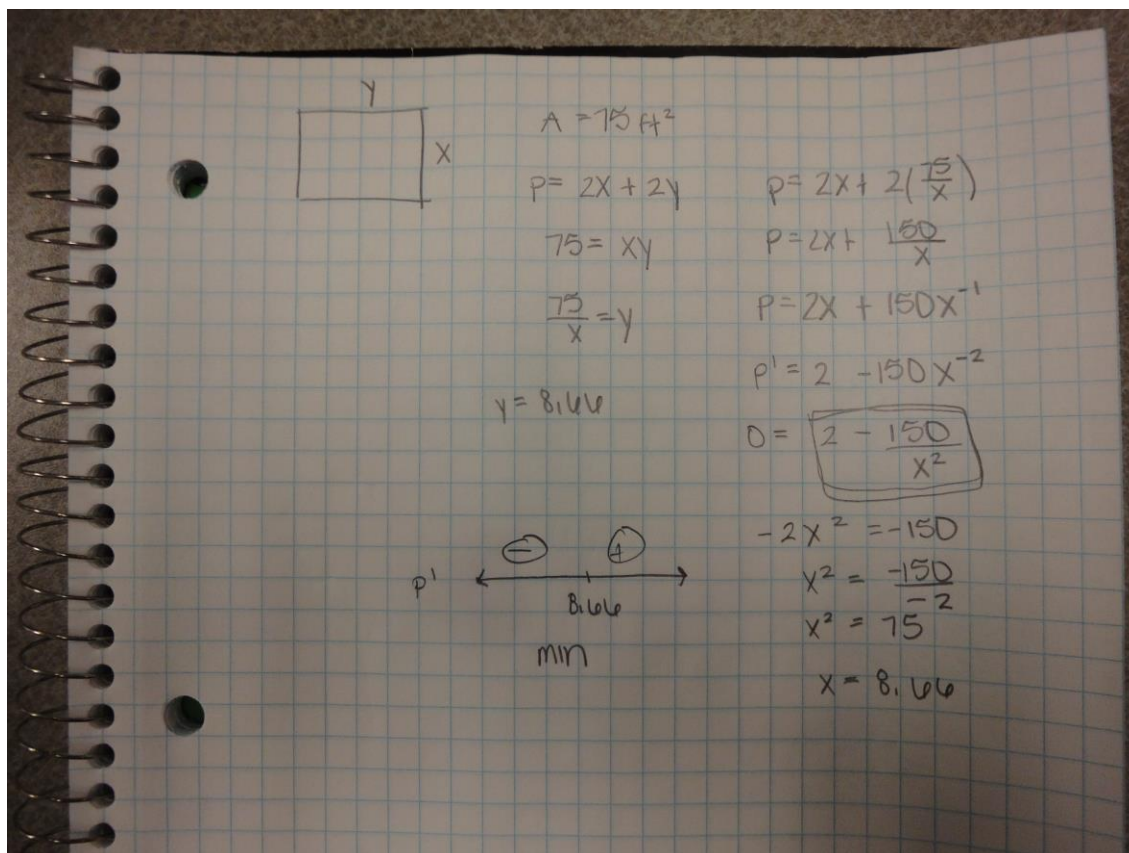 Y
X
A = 75 ft²
P = 2X + 2y
75 = xy
75/x = y
y = 8.66
P' − +
8.66
min
P = 2X + 2(75/x)
P = 2X + 150/x
P = 2X + 150X⁻¹
P' = 2 - 150X⁻²
0 = 2 - 150/x²
-2x² = -150
x² = -150/-2
x² = 75
x = 8.66